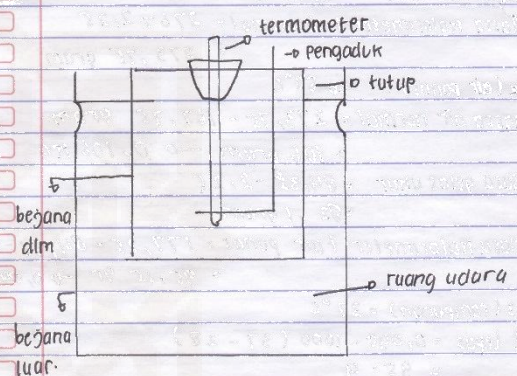 termometer
pengaduk
tutup
bejana
dlm
ruang udara
bejana
luar.